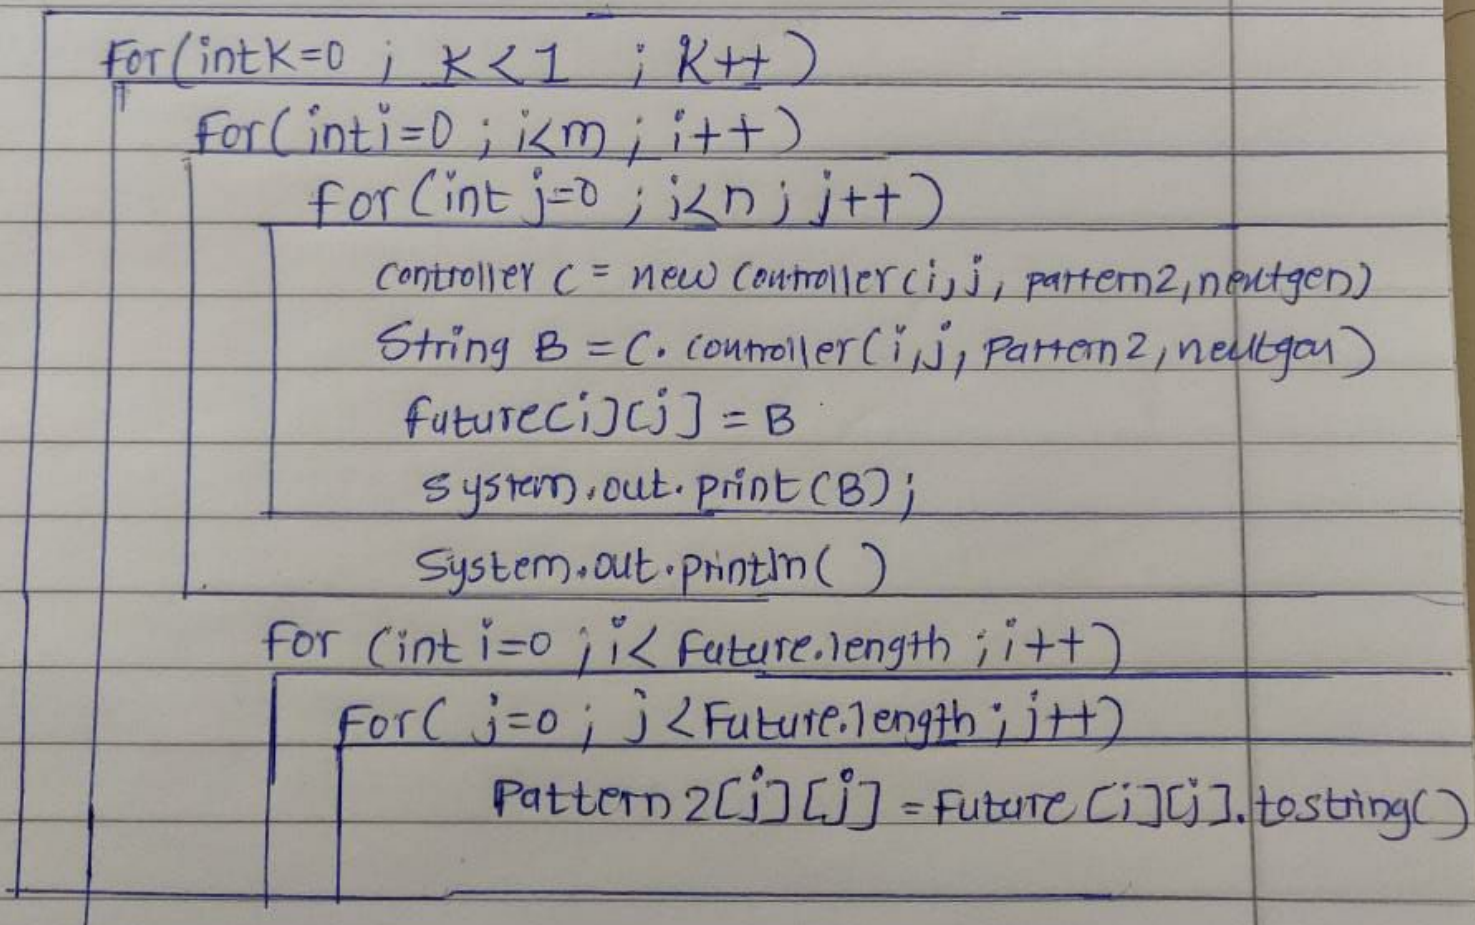 For(int K=0 ; K<1 ; K++)
For(int i=0 ; i<m ; i++)
for(int j=0 ; i<n ; j++)
Controller C = new Controller(i,j, pattern2,nextgen)
String B = C. controller(i,j, Pattern2,nextgen)
future[i][j] = B
system.out.print(B);
System.out.println( )
For (int i=0 ; i< Future.length ; i++)
For( j=0 ; j <Future.length ; j++)
Pattern 2[i][j] = Future [i][j].tostring()